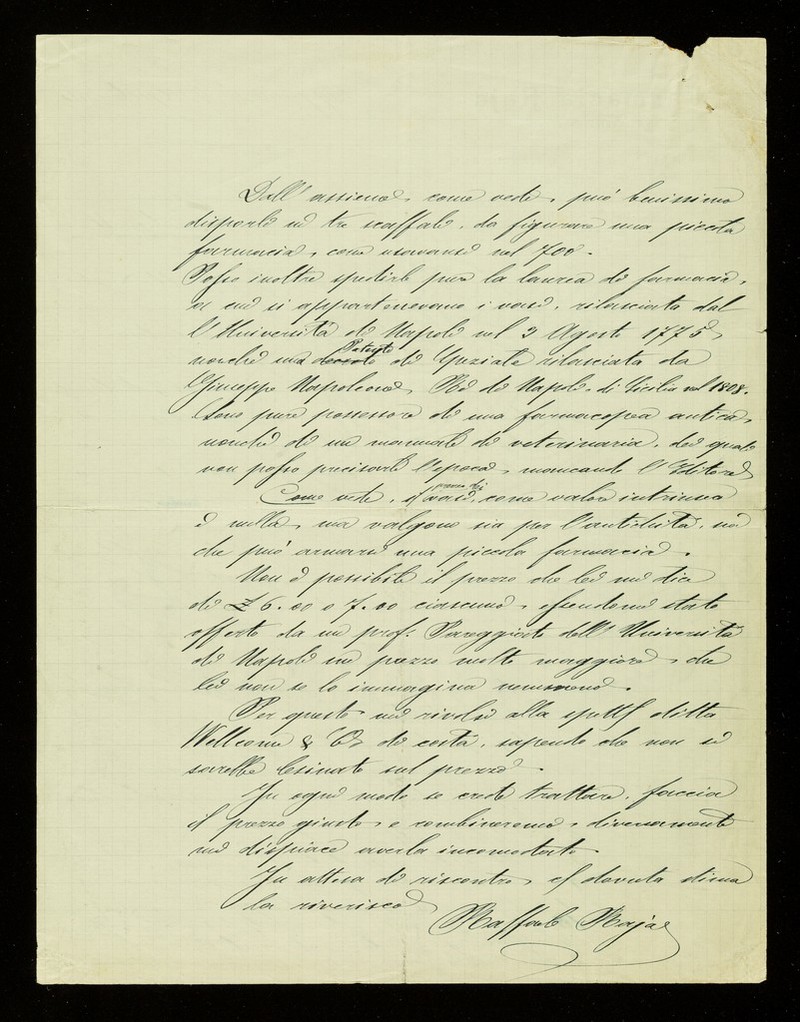 Dall' assieme, come vede, può benissimo
disporli in tre scaffali, da figurare una piccola
farmacia, come usavansi nel 700.
Posso inoltre spedirle pure la laurea di farmacia,
a cui si appartenevano i vasi, rilasciata dal
l'Università di Napoli nel 3 Agosto 1775,
nonchè una Patente di Speziale rilasciata da
Giuseppe Napoleone, Rè di Napoli, di Sicilia nel 1808.
Sono pure possessore di una farmacopea antica,
nonchè di un manuale di veterinaria, dei quali
non posso precisarle l'epoca, mancando l'Editore
Come vede, il vasi, come valore intrinseco
è nulla, ma valgono sia per l'antichità, sia
che può armarsi una piccola farmacia.
Non è possibile il prezzo che lei mi dice
di £ 6.00 o 7.00 ciascuno, essendomi stato
offerto da un prof: Pareggiato dell'Università
di Napoli un prezzo molto maggiore, che
lei non se lo immagina nemmeno.
Per questo mi rivolsi alla spett ditta
Wellcome & Cº di costà, sapendo che non si
sarebbe lesinato sul prezzo.
In ogni modo se crede trattare, faccia
il prezzo giusto, e combineremo, diversamente
mi dispiace averla incomodato.
In attesa di riscontro, con dovuta stima
la riverisco
Raffaele Raja